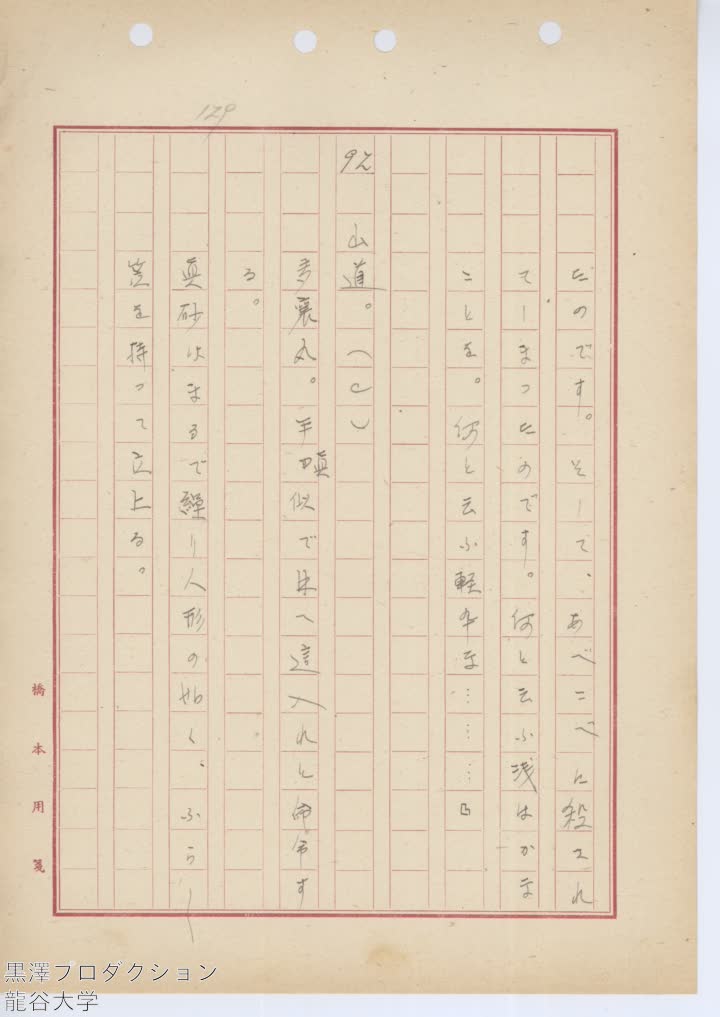 129
たのです。そして、あべこべに殺され
てしまったのです。何と云ふ浅はかな
ことを。何と云ふ軽卒な………』
92 山道。(C)
多襄丸。手眞似で へ這入れと命令す
る。
眞砂はまるで繰り人形の如く、ふら〱
笠を持って立上る。
橋本用箋
黒澤プロダクション
龍谷大学